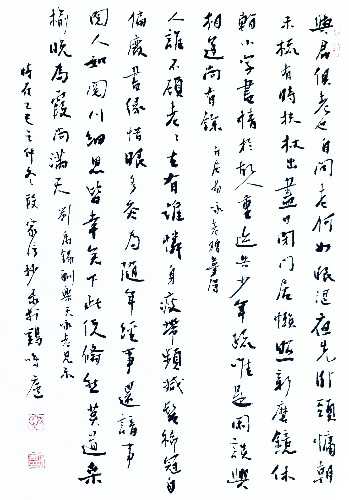 與君俱老也自問老何如眼澀夜先卧頭慵朝
未梳有時扶杖出盡日閉門居懶照新磨鏡休
看小字書情於故人重迹共少年疏唯是閑談興
相逢尚有餘 白居易咏老贈夢得
人誰不顧老々去有誰憐身瘦帶頻減髮稀冠自
偏廢書緣惜眼多灸為隨年經事還諳事
閱人如閱川細思皆幸矣下此便翛然莫道桑
榆晚為霞尚滿天 劉禹錫酬樂天咏老見示
時在乙 之仲冬段家 抄 於鷄鳴庵